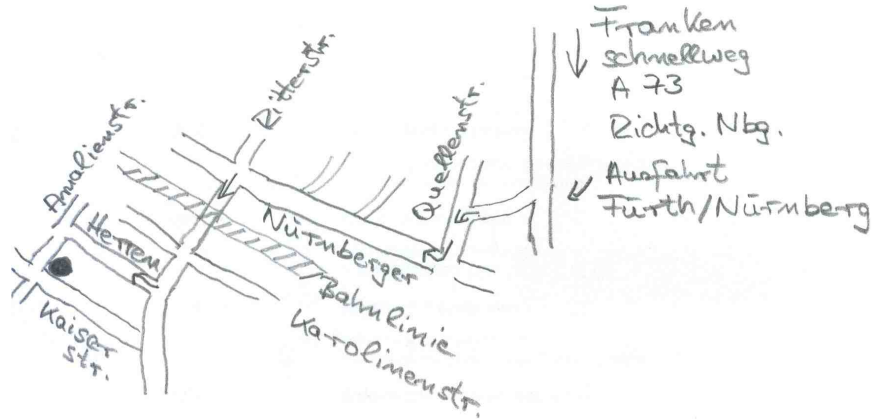 Franken
schnellweg
A 73
Richtg. Nbg.
Ausfahrt
Fürth/Nürnberg
Quellenstr.
Ritterstr.
Amalienstr.
Nürnberger
Herren
Bahnlinie
Karolinenstr.
Kaiser
str.